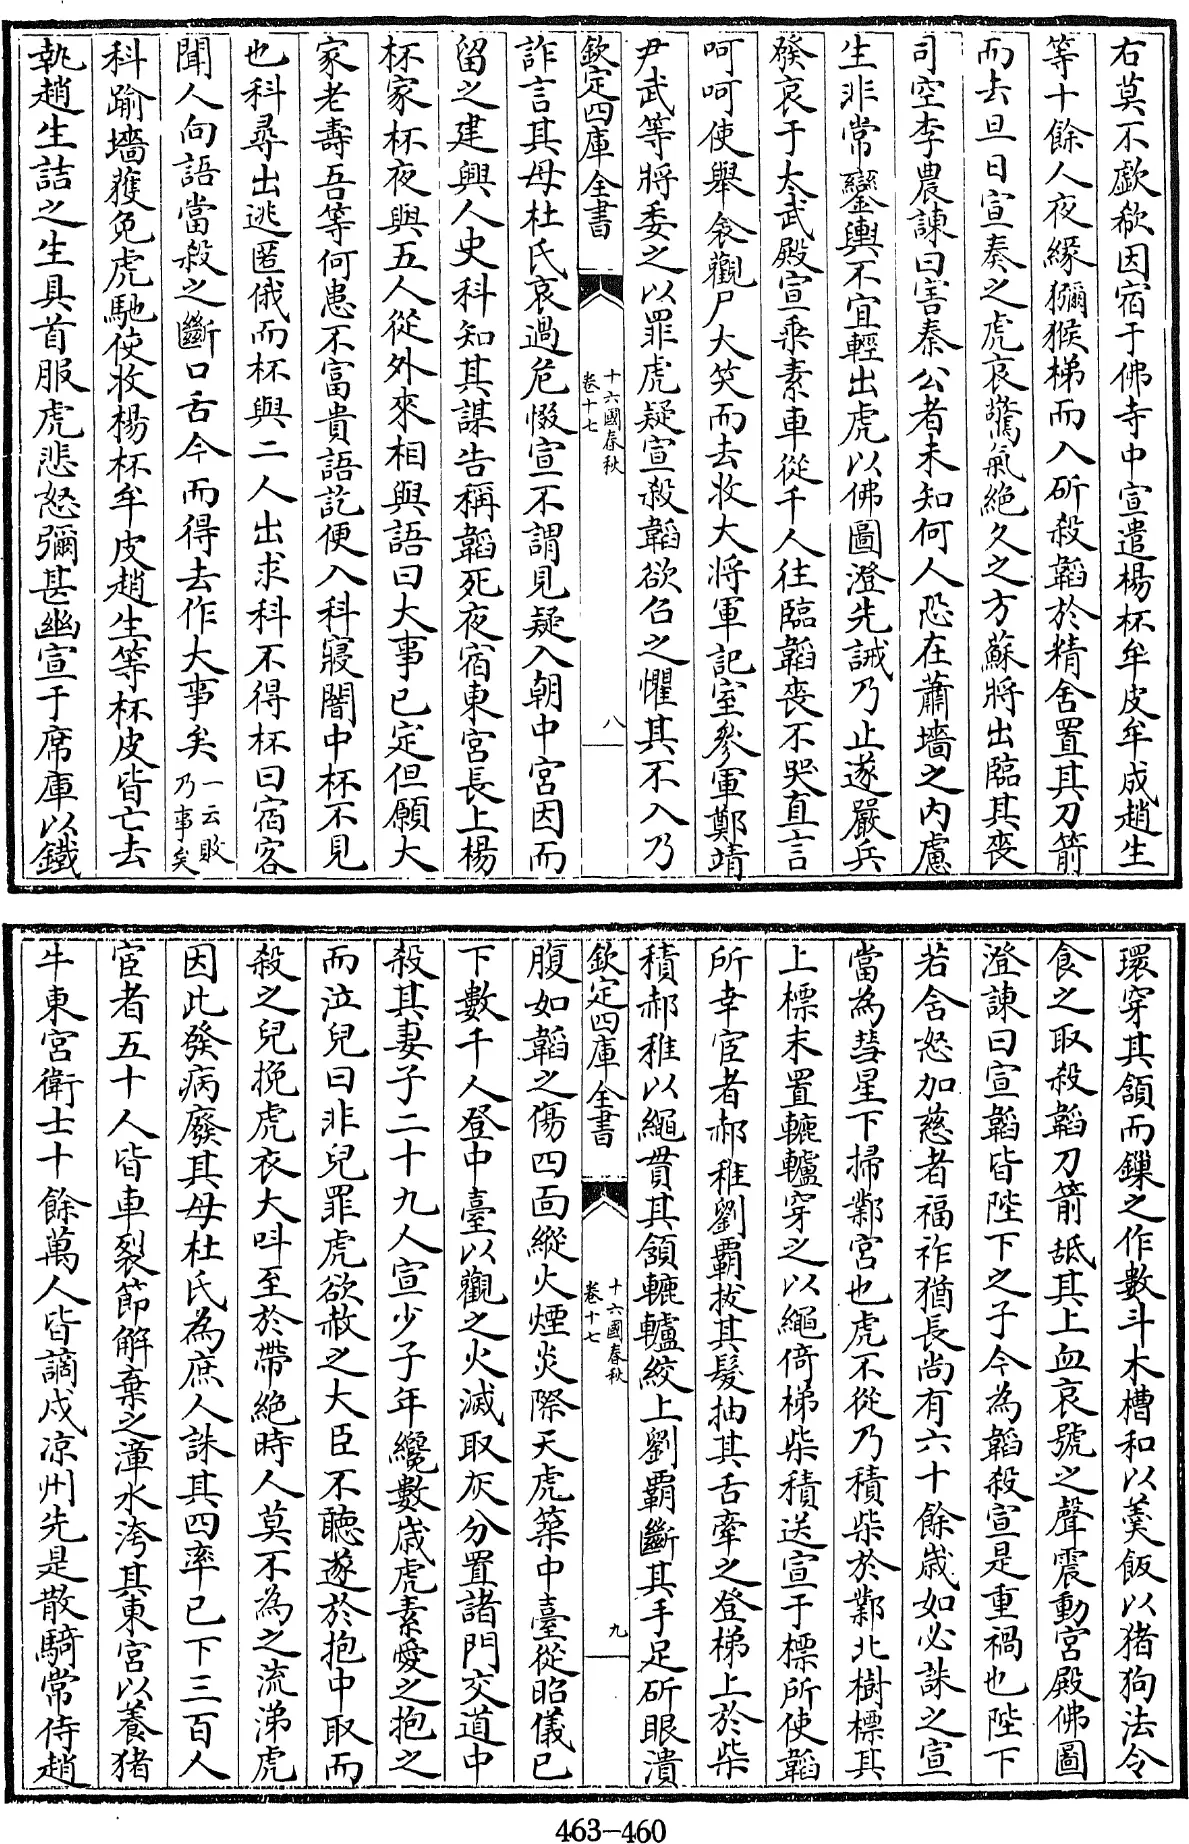 右莫不歔欷因宿于佛寺中宣遣楊杯牟皮牟成趙生
等十餘人夜緣獼猴梯而入斫殺韜於精舍置其刀箭
而去旦日宣奏之虎哀驚氣絶久之方蘇將出臨其喪
司空李農諫曰害秦公者未知何人恐在蕭墻之内慮
生非常鑾輿不宜輕出虎以佛圖澄先誡乃止遂嚴兵
發哀于太武殿宣乘素車從千人往臨韜喪不哭直言
呵呵使舉衾觀尸大笑而去收大將軍記室參軍鄭靖
尹武等將委之以罪虎疑宣殺韜欲召之懼其不入乃
欽定四庫全書
十六國春秋
卷十七
八
詐言其母杜氏哀過危惙宣不謂見疑入朝中宮因而
留之建興人史科知其謀告稱韜死夜宿東宮長上楊
杯家杯夜與五人從外來相與語曰大事已定但願大
家老壽吾等何患不富貴語訖便入科寢闇中杯不見
也科尋出逃匿俄而杯與二人出求科不得杯曰宿客
聞人向語當殺之斷口舌今而得去作大事矣一云敗
乃事矣
科踰墻獲免虎馳使收楊杯牟皮趙生等杯皮皆亡去
執趙生詰之生具首服虎悲怒彌甚幽宣于席庫以鐵
環穿其頷而鏁之作數斗木槽和以羹飯以猪狗法令
食之取殺韜刀箭舐其上血哀號之聲震動宮殿佛圖
澄諫曰宣韜皆陛下之子今為韜殺宣是重禍也陛下
若含怒加慈者福祚猶長尚有六十餘歳如必誅之宣
當為彗星下掃鄴宮也虎不從乃積柴於鄴北樹標其
上標末置轆轤穿之以繩倚梯柴積送宣于標所使韜
所幸宦者郝稚劉霸拔其髮抽其舌牽之登梯上於柴
積郝稚以繩貫其頷轆轤絞上劉霸斷其手足斫眼潰
欽定四庫全書
十六國春秋
卷十七
九
腹如韜之傷四面縱火煙炎際天虎築中臺從昭儀已
下數千人登中臺以觀之火滅取灰分置諸門交道中
殺其妻子二十九人宣少子年纔數歳虎素愛之抱之
而泣兒曰非兒罪虎欲赦之大臣不聽遂於抱中取而
殺之兒挽虎衣大呌至於帶絶時人莫不為之流涕虎
因此發病廢其母杜氏為庶人誅其四率已下三百人
宦者五十人皆車裂節解棄之漳水洿其東宮以養猪
牛東宮衛士十餘萬人皆謫戍凉州先是散騎常侍趙
463-460